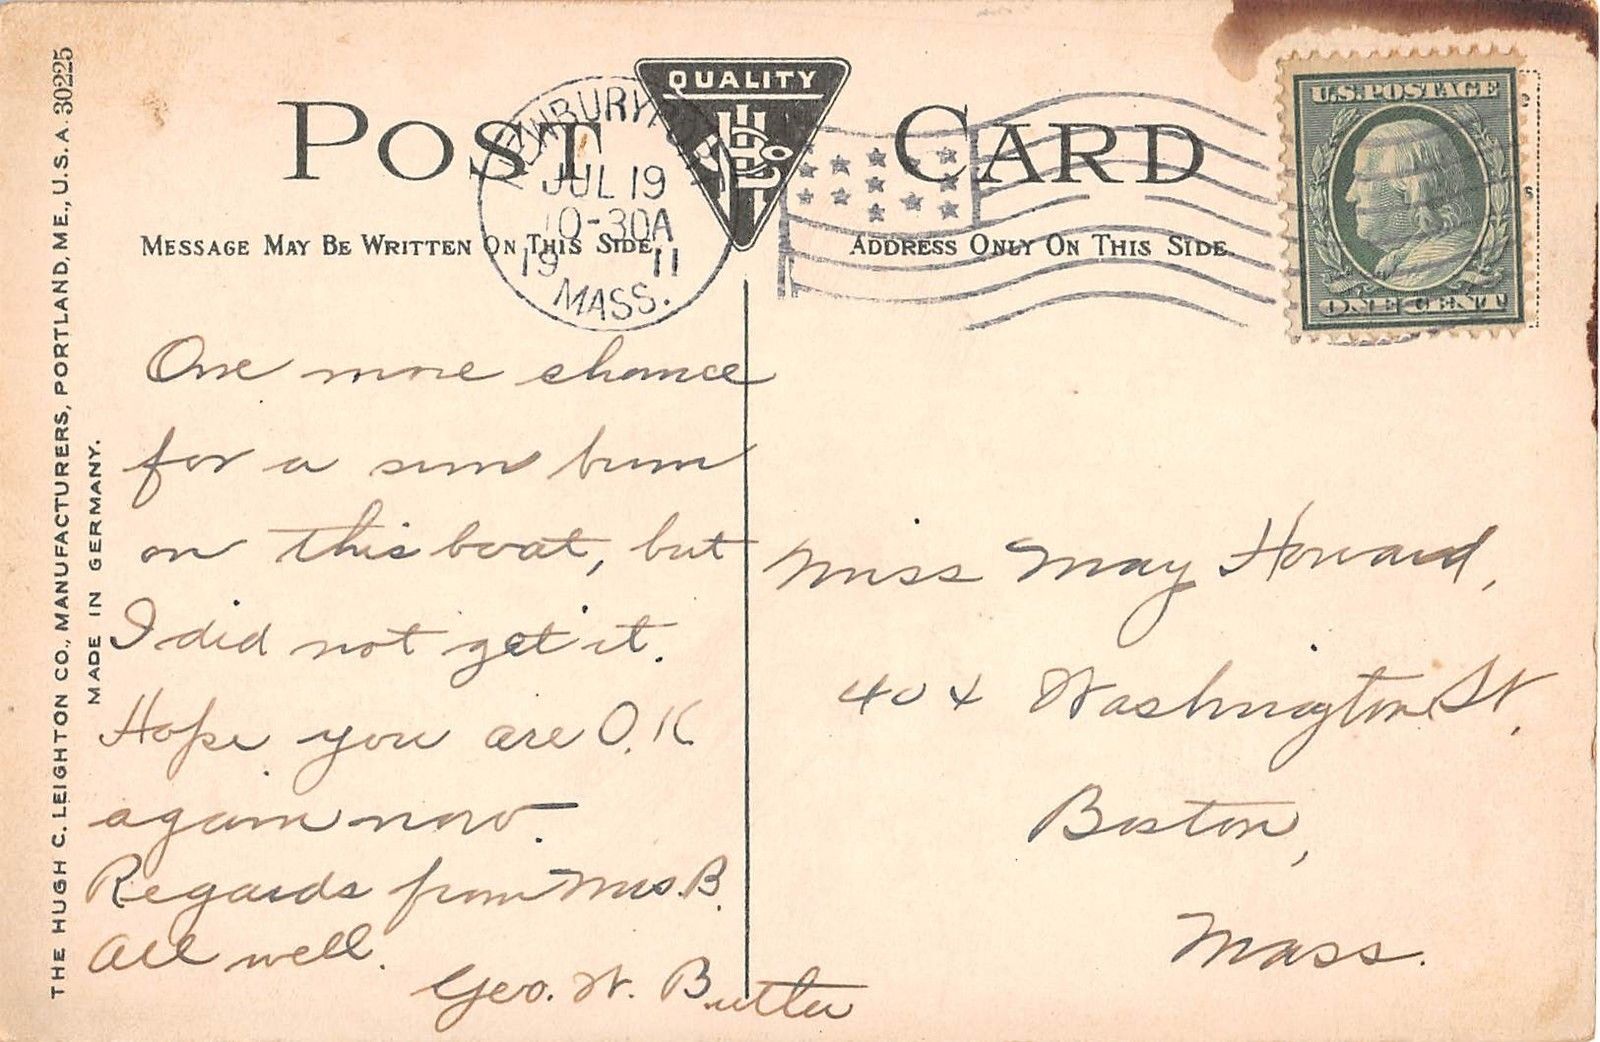 POST CARD
QUALITY
NEWBURYPORT
JUL 19
10-30A
19 11
MASS.
U.S. POSTAGE
ONE CENT
MESSAGE MAY BE WRITTEN ON THIS SIDE
ADDRESS ONLY ON THIS SIDE
THE HUGH C. LEIGHTON CO., MANUFACTURERS, PORTLAND, ME., U.S.A. 30225
MADE IN GERMANY.
One more chance
for a sun burn
on this boat, but
I did not get it.
Hope you are O.K
again now.
Regards from Mrs. B.
All well.
Geo. W. Butler
Miss May Howard,
404 Washington St,
Boston,
Mass.